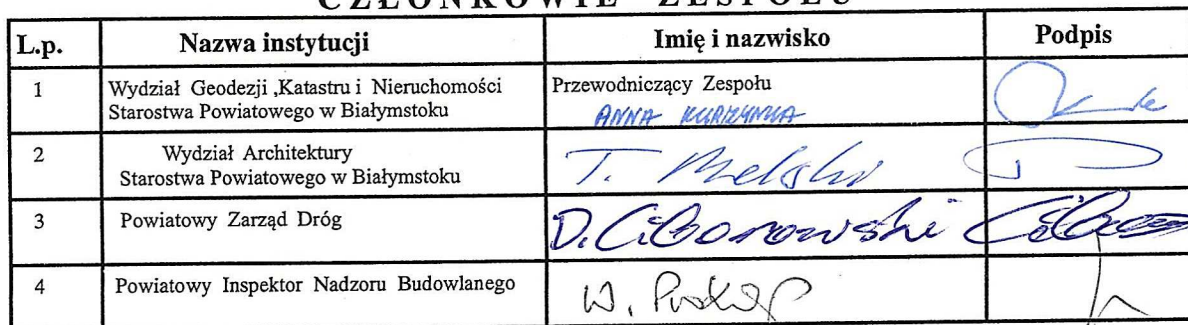 CZŁONKOWIE ZESPOŁU
L.p. Nazwa instytucji Imię i nazwisko Podpis
1 Wydział Geodezji ,Katastru i Nieruchomości Przewodniczący Zespołu
Starostwa Powiatowego w Białymstoku ANNA
2 Wydział Architektury
Starostwa Powiatowego w Białymstoku T.
3 Powiatowy Zarząd Dróg D. Ciborowski
4 Powiatowy Inspektor Nadzoru Budowlanego W. Prokop